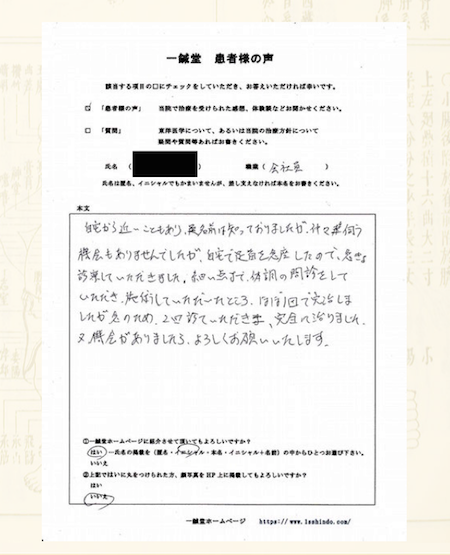 一鍼堂 患者様の声
該当する項目の□にチェックをしていただき、お答えいただければ幸いです。
☑ 「患者様の声」 当院で治療を受けられた感想、体験談などお聞かせください。
□ 「質問」 東洋医学について、あるいは当院の治療方針について
疑問や質問等あればお書きください。
氏名 ( ) 職業 ( 会社員 )
氏名は匿名、イニシャルでもかまいませんが、差し支えなければ本名をお書きください。
本文
自宅から近いこともあり、名前は知っておりましたが、伺う
機会もありませんでしたが、自宅で足首を捻挫したので、急きょ
診察していただきました。細い点まで、体調の問診をして
いただき、施術していただいたところ、ほぼ1回で完治しま
したが念のため、2回診ていただき、完全に治りました。
又機会がありましたら、よろしくお願いいたします。
①一鍼堂ホームページに紹介させて頂いてもよろしいですか？
はい …氏名の掲載を (匿名・イニシャル・本名・イニシャル+名前) の中からひとつお選び下さい。
いいえ
②上記ではいに丸をつけられた方、顔写真をHP上に掲載してもよろしいですか？
はい
いいえ
一鍼堂ホームページ https://www.isshindo.com/